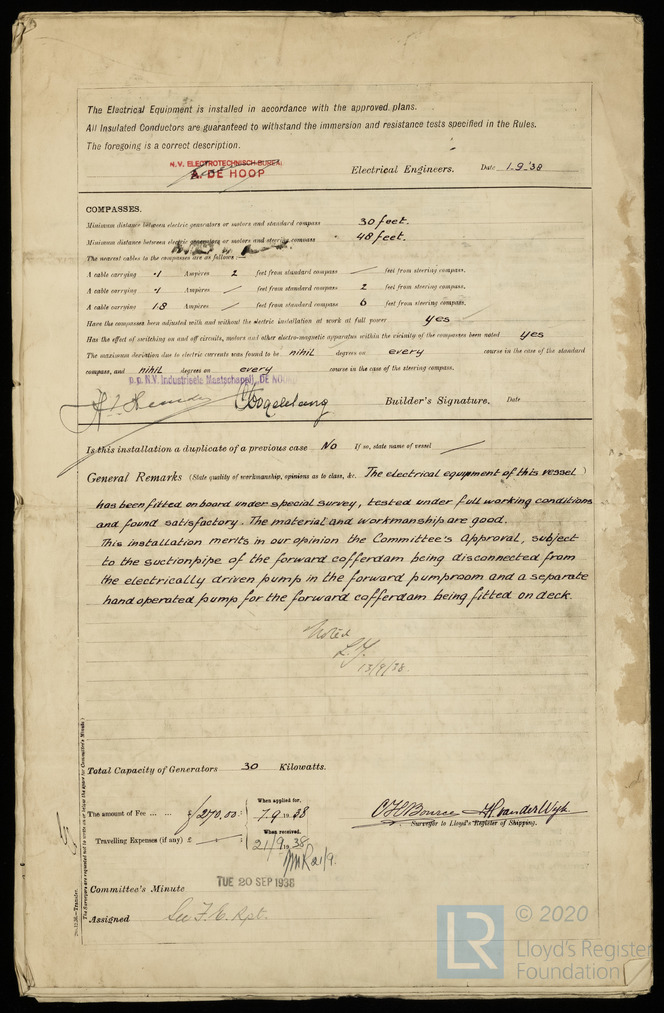 The Electrical Equipment is installed in accordance with the approved plans.
All Insulated Conductors are guaranteed to withstand the immersion and resistance tests specified in the Rules.
The foregoing is a correct description.
N.V. ELECTROTECHNISCH BUREAU
A. DE HOOP Electrical Engineers. Date 1.9.'38
COMPASSES.
Minimum distance between electric generators or motors and standard compass 30 feet.
Minimum distance between electric generators or motors and steering compass 48 feet.
The nearest cables to the compasses are as follows:—
A cable carrying .1 Ampères 2 feet from standard compass — feet from steering compass.
A cable carrying .1 Ampères — feet from standard compass 2 feet from steering compass.
A cable carrying 1.8 Ampères — feet from standard compass 6 feet from steering compass.
Have the compasses been adjusted with and without the electric installation at work at full power yes
Has the effect of switching on and off circuits, motors and other electro-magnetic apparatus within the vicinity of the compasses been noted yes
The maximum deviation due to electric currents was found to be nihil degrees on every course in the case of the standard
compass, and nihil degrees on every course in the case of the steering compass.
p.p. N.V. Industrieele Maatschappij "DE NOORD"
Builder's Signature. Date
Is this installation a duplicate of a previous case No If so, state name of vessel —
General Remarks (State quality of workmanship, opinions as to class, &c. The electrical equipment of this vessel )
has been fitted onboard under special survey, tested under full working conditions
and found satisfactory. The material and workmanship are good.
This installation merits in our opinion the Committee's Approval, subject
to the suctionpipe of the forward cofferdam being disconnected from
the electrically driven pump in the forward pumproom and a separate
hand operated pump for the forward cofferdam being fitted on deck.
Noted
L.Y.
13/9/38.
Total Capacity of Generators 30 Kilowatts.
The amount of Fee ... ... ƒ 270.00 : When applied for, 7.9.1938
Travelling Expenses (if any) £ — : When received, 21/9 1938
21/9.
Surveyor to Lloyd's Register of Shipping.
Committee's Minute TUE 20 SEP 1938
Assigned See F.E. Rpt.
The Surveyors are requested not to write on or below the space for Committee's Minute.
LR © 2020
Lloyd's Register
Foundation